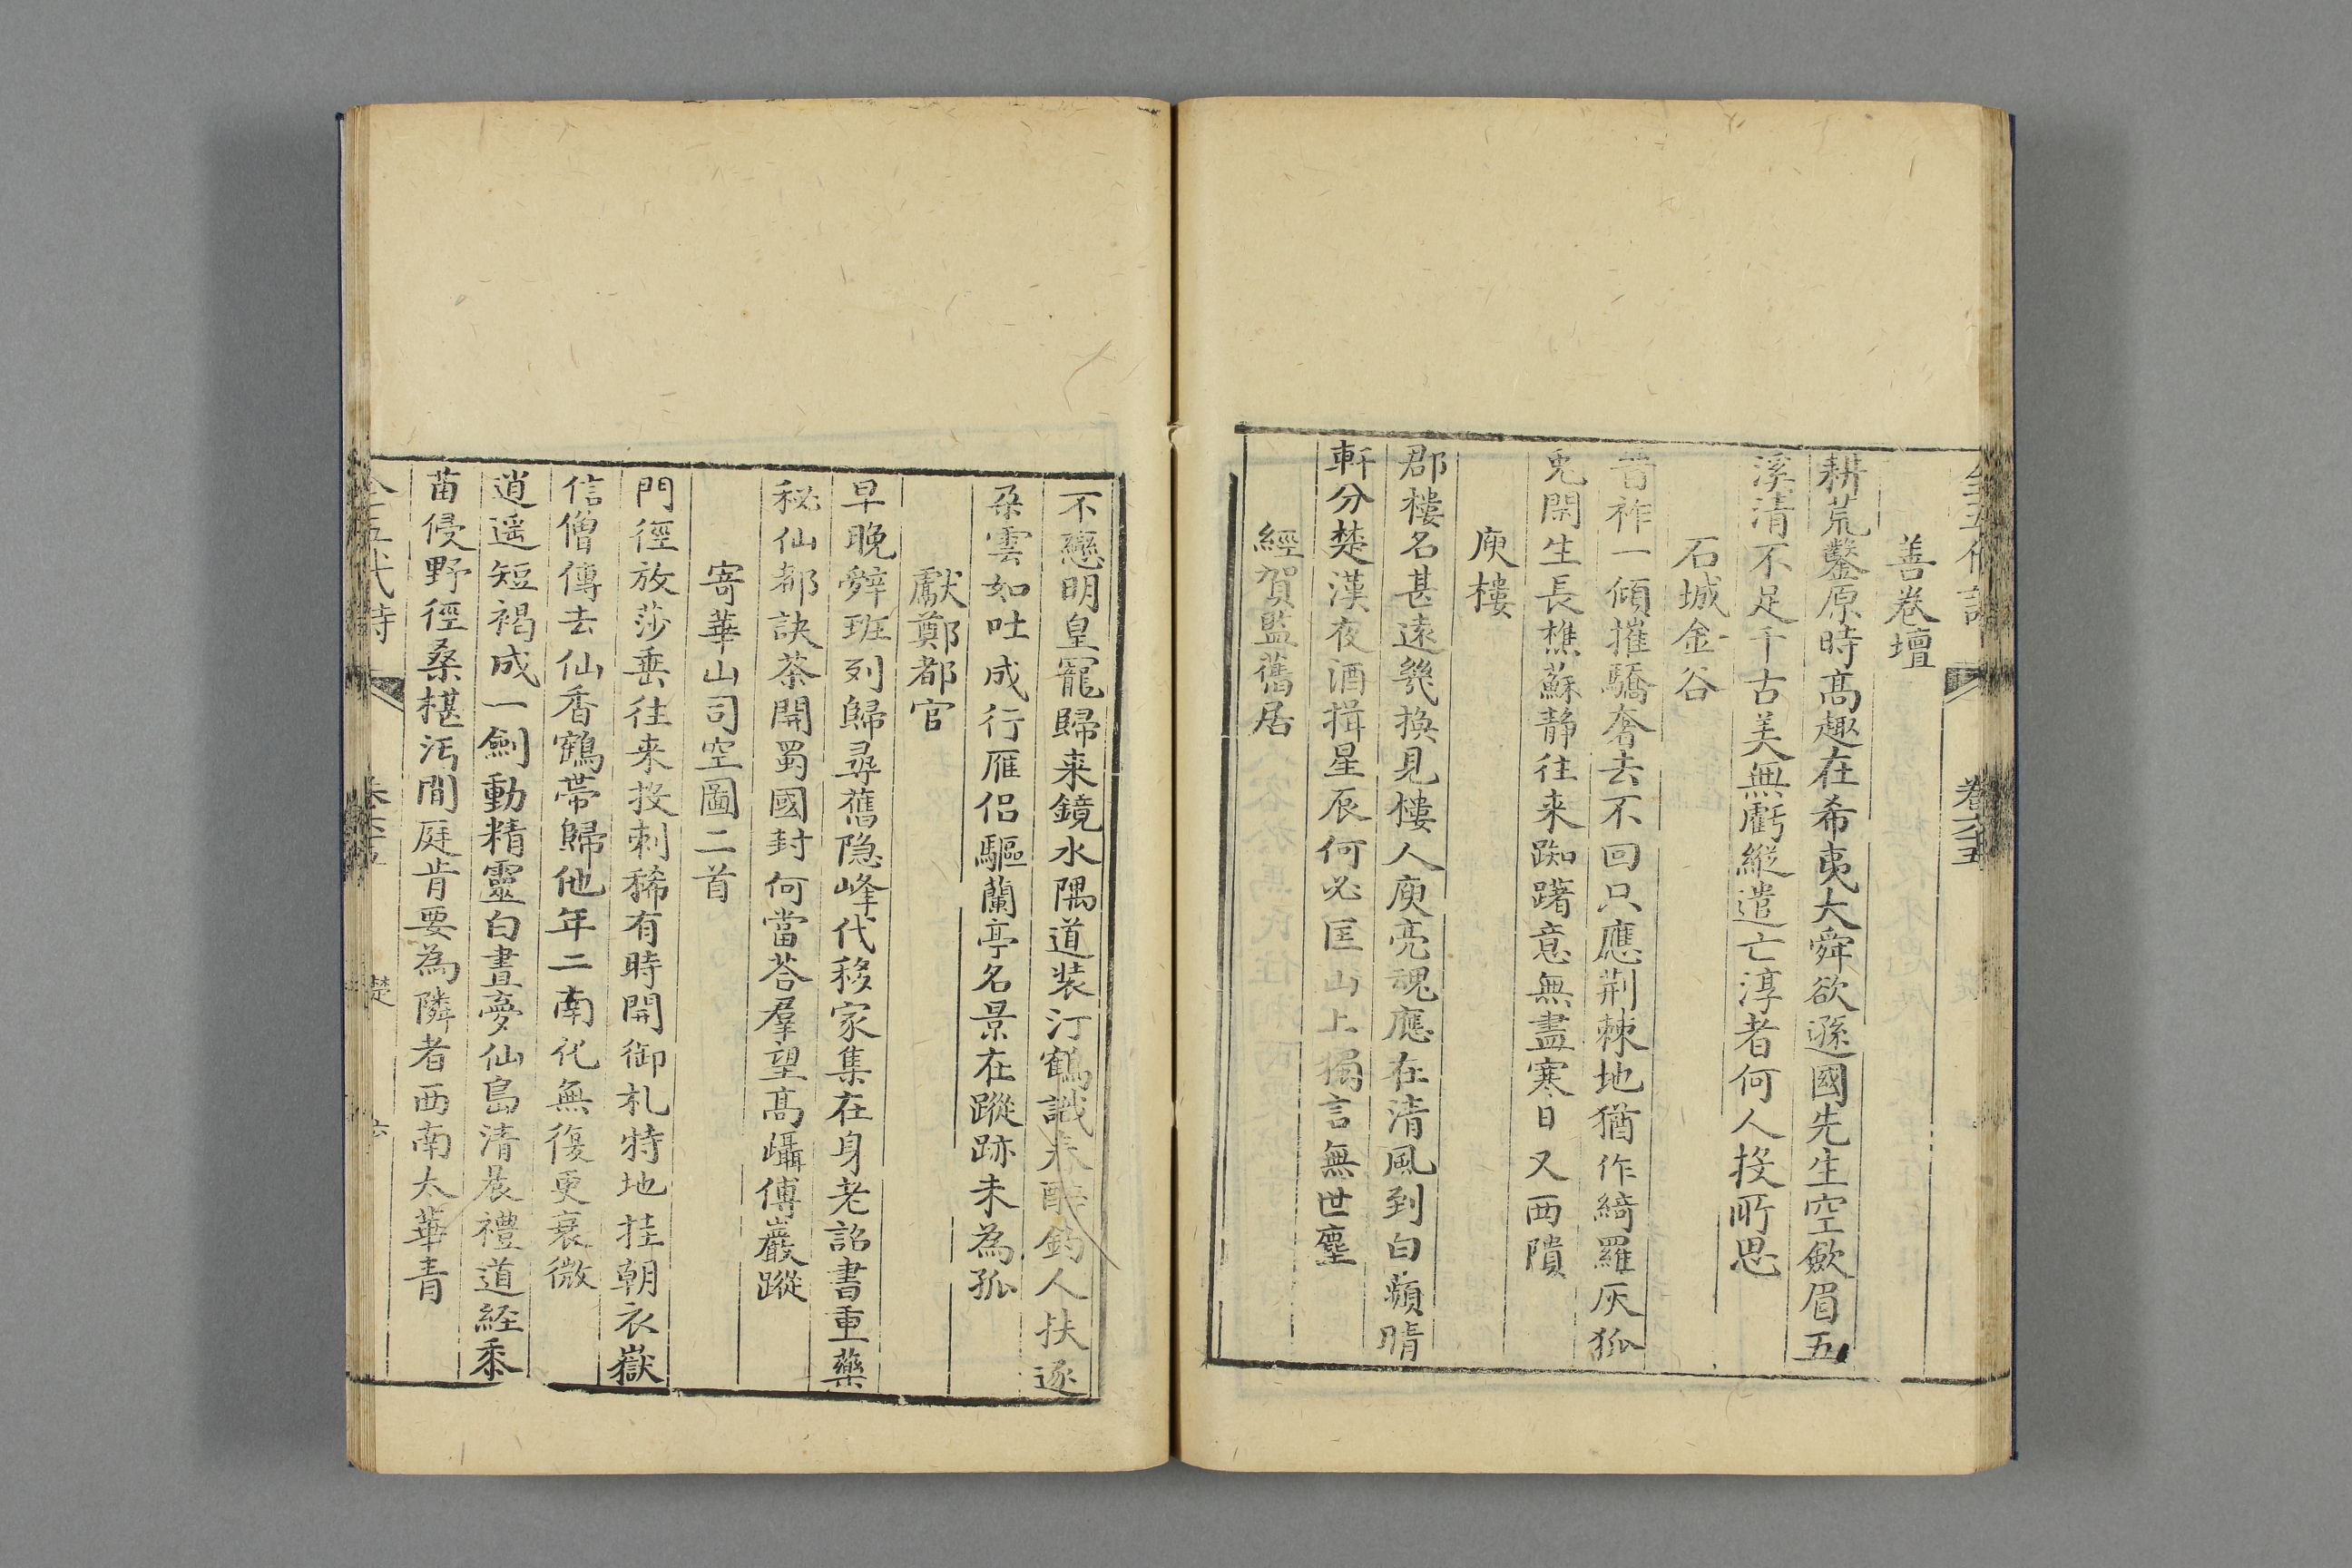 善卷壇
耕荒鑿原時髙趣在希夷大舜欲遜國先生空歛眉五
溪清不足千古美無虧縱遣亡淳者何人投所思
石城金谷
昔祚一傾摧驕奢去不回只應荆棘地猶作綺羅灰狐
兎閑生長樵蘇静往来踟躇意無盡寒日又西隤
庾樓
郡樓名甚遠幾換見樓人庾亮魂應在清風到白蘋晴
軒分楚漢夜酒揖星辰何必匡山上獨言無世塵
經賀監舊居
不戀明皇寵歸来鏡水隅道装汀鶴識春醉釣人扶逐
朶雲如吐成行雁侣驅蘭亭名景在蹤跡未為孤
獻鄭都官
早晚辞班列歸尋舊隐峰代移家集在身老詔書重藥
秘仙都訣茶開蜀國封何當荅羣望髙躡傅巖蹤
寄華山司空圖二首
門徑放莎垂往来投刺稀有時開御札特地挂朝衣嶽
信僧傳去仙香鶴帶歸他年二南化無復更衰微
逍遥短褐成一劍動精靈白晝夢仙島清晨禮道経黍
苗侵野徑桑椹汚閒庭肯要為隣者西南太華青
全五代詩 楚